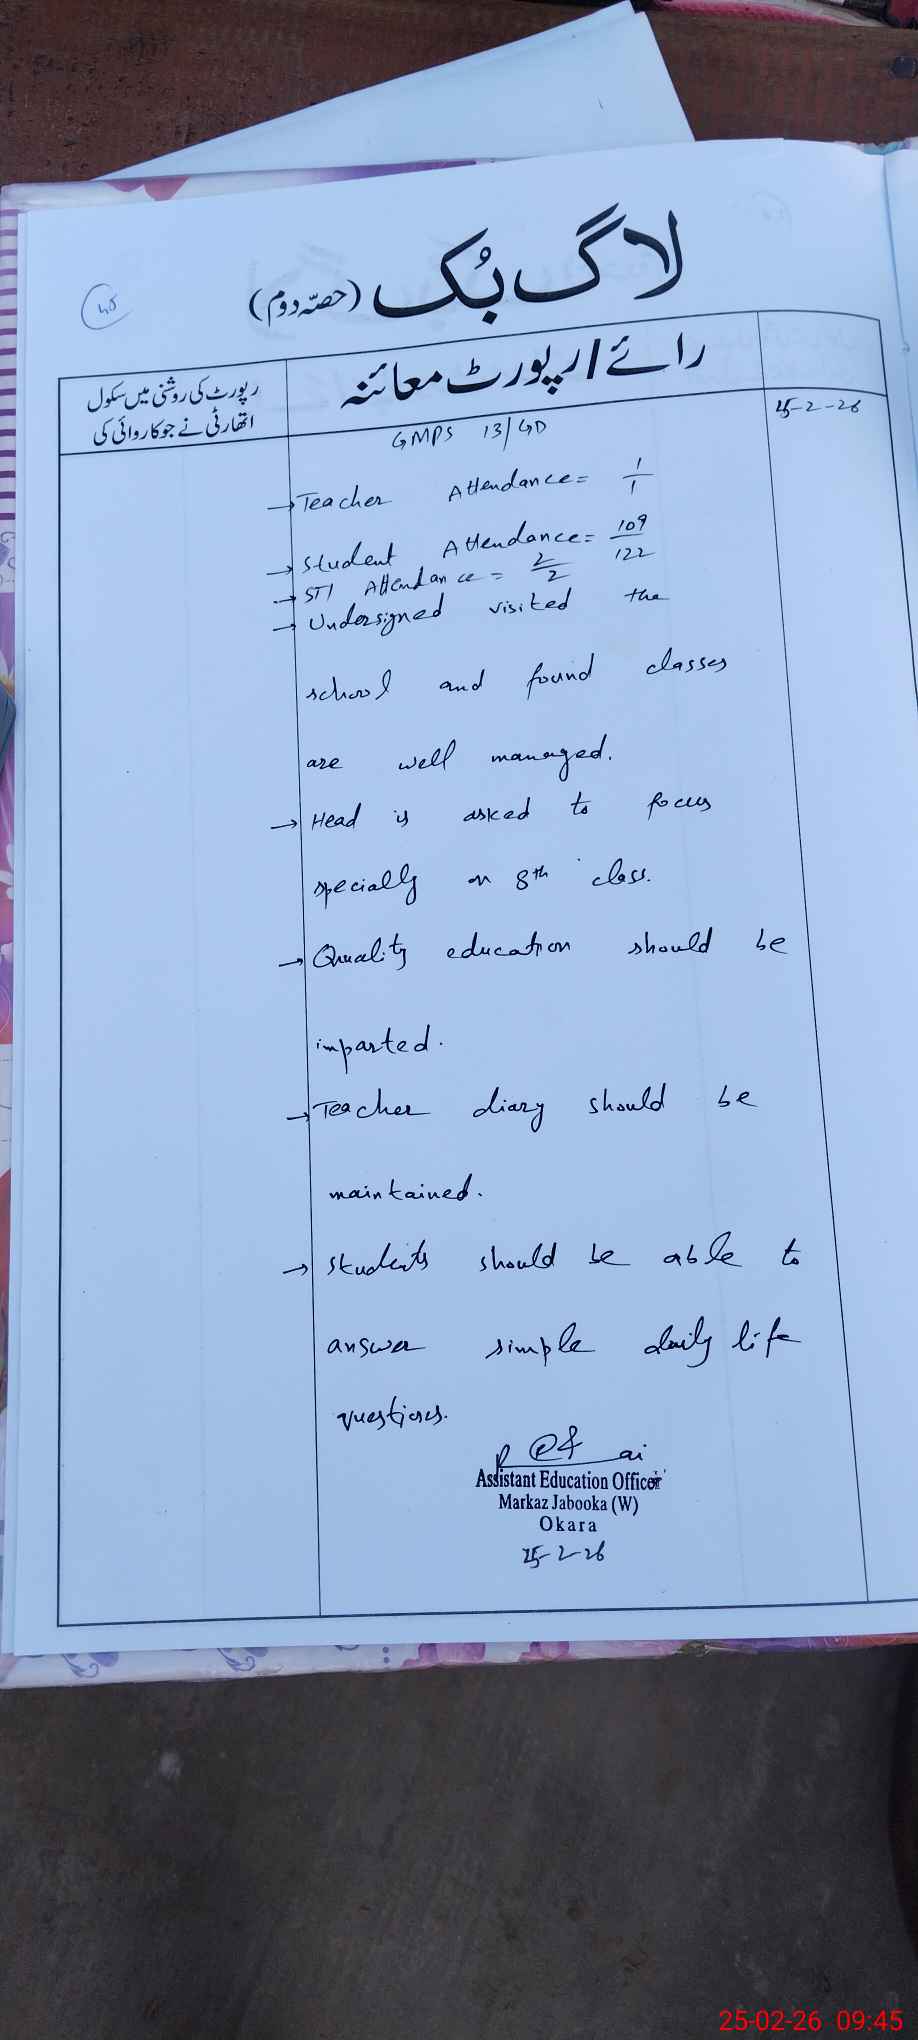 لاگ بُک (حصّہ دوم)
رائے / رپورٹ معائنہ
رپورٹ کی روشنی میں سکول
اتھارٹی نے جو کاروائی کی
25-2-26
GMPS 13/GD
→ Teacher Attendance = 1/1
→ Student Attendance = 109/122
→ STI Attendance = 2/2
→ Undersigned visited the
school and found classes
are well managed.
→ Head is asked to focus
specially on 8th class.
→ Quality education should be
imparted.
→ Teacher diary should be
maintained.
→ Students should be able to
answer simple daily life
questions.
Assistant Education Officer
Markaz Jabooka (W)
Okara
25-2-26
25-02-26 09:45